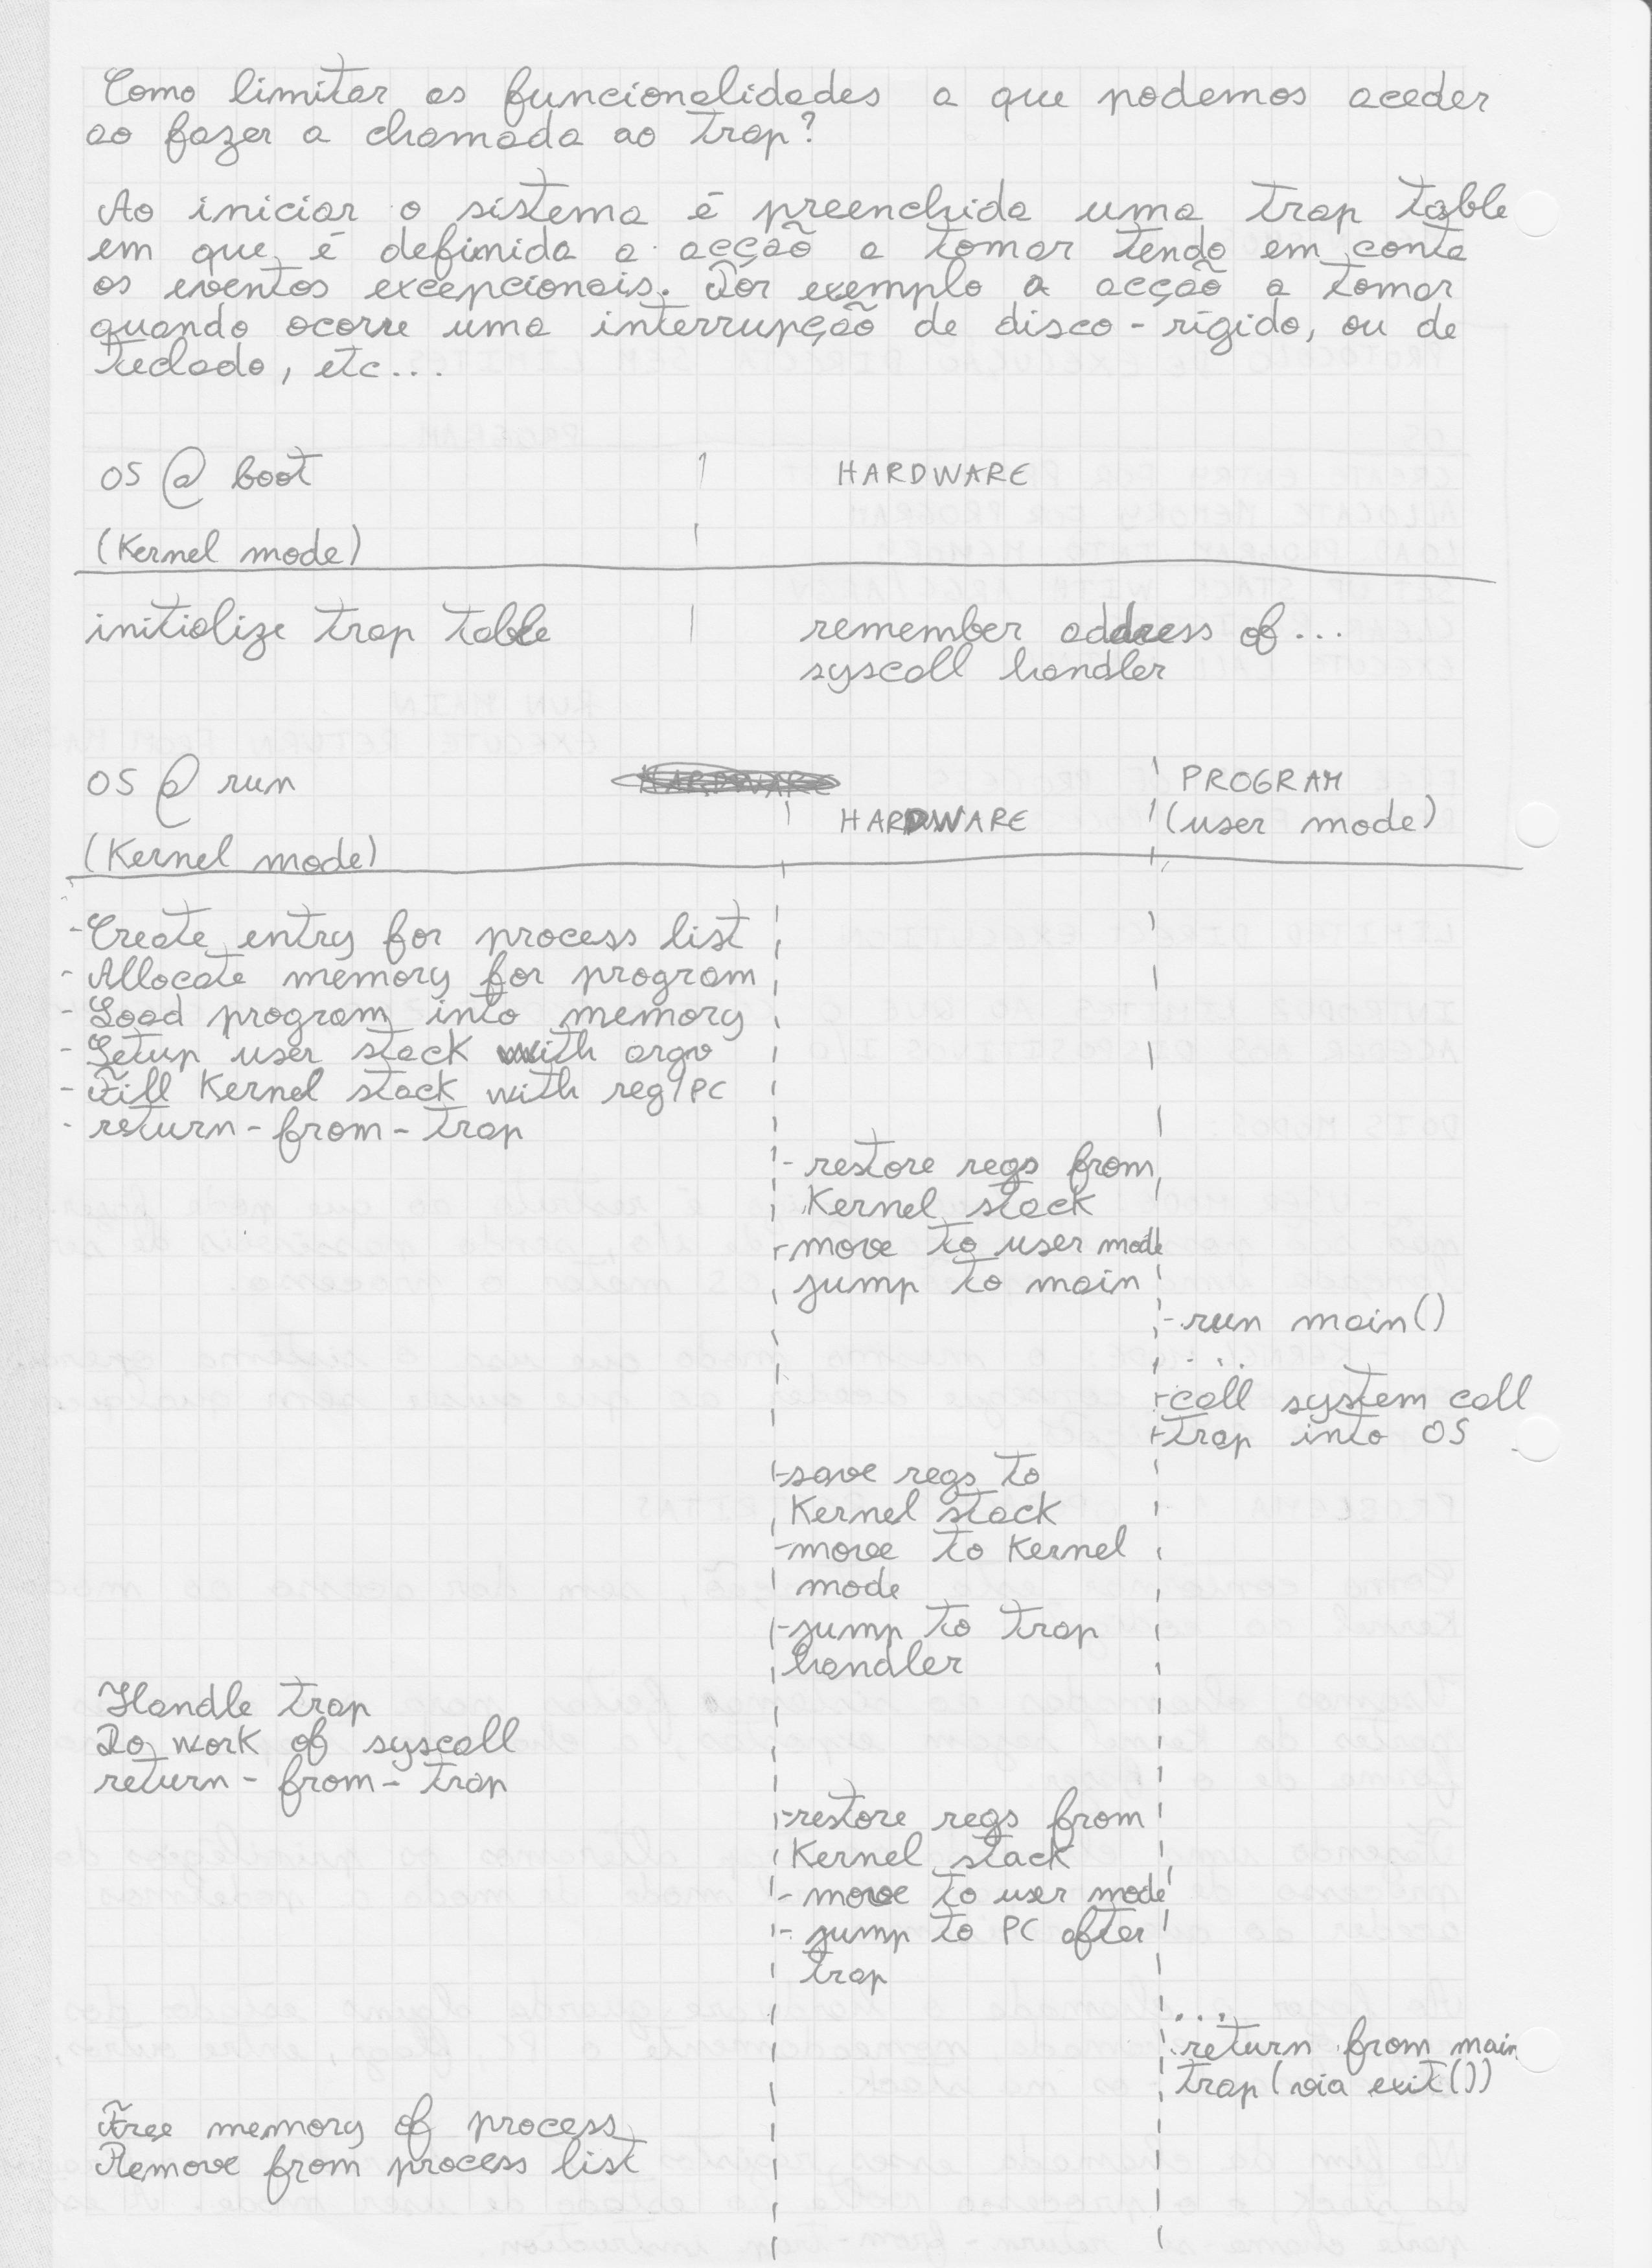 Como limitar as funcionalidades a que podemos aceder
ao fazer a chamada ao trap?
Ao iniciar o sistema é preenchida uma trap table
em que é definida a acção a tomar tendo em conta
os eventos excepcionais. Por exemplo a acção a tomar
quando ocorre uma interrupção de disco-rígido, ou de
teclado, etc...
OS @ boot
HARDWARE
(Kernel mode)
initialize trap table
remember address of...
syscall handler
OS @ run
PROGRAM
HARDWARE
(user mode)
(Kernel mode)
- Create entry for process list
- Allocate memory for program
- Load program into memory
- Setup user stack with argv
- Fill Kernel stack with reg/PC
- return-from-trap
- restore regs from
Kernel stack
- move to user mode
jump to main
- run main()
....
- call system call
- trap into OS
- save regs to
Kernel stack
- move to Kernel
mode
- jump to trap
handler
Handle trap
Do work of syscall
return-from-trap
- restore regs from
Kernel stack
- move to user mode
- jump to PC after
trap
....
return from main
trap (via exit())
Free memory of process
Remove from process list